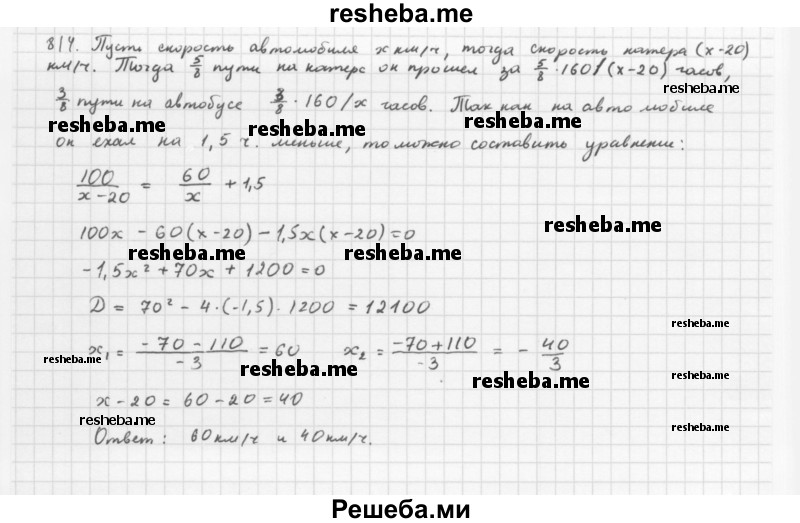 resheba.me
814. Пусть скорость автомобиля x км/ч, тогда скорость катера (x-20)
км/ч. Тогда 5/8 пути на катере он прошел за 5/8 · 160/(x-20) часов,
resheba.me
3/8 пути на автобусе 3/8 · 160/x часов. Так как на автомобиле
resheba.me resheba.me resheba.me
он ехал на 1,5 ч. меньше, то можно составить уравнение:
100/(x-20) = 60/x + 1,5
resheba.me
100x - 60(x-20) - 1,5x(x-20) = 0
resheba.me resheba.me
-1,5x² + 70x + 1200 = 0
D = 70² - 4·(-1,5)·1200 = 12100
resheba.me
x₁ = (-70-110)/-3 = 60 x₂ = (-70+110)/-3 = -40/3
resheba.me resheba.me resheba.me resheba.me
x-20 = 60-20 = 40
resheba.me
Ответ: 60км/ч и 40км/ч.
resheba.me
Решеба.ми